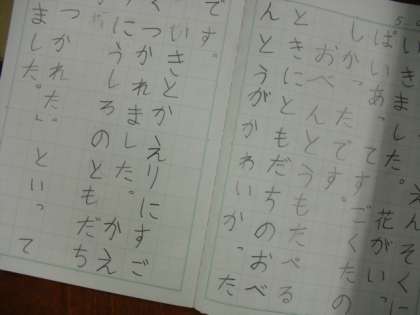 いきました。えんそくに
ぱいあってすごくたの
しかったです。花がいっ
おべんとうもたべる
ときにともだちのおべ
んとうがかわいかった
です。
いきとかえりにすご
くつかれました。かえ
りにうしろのともだち
つかれた。」といって
ました。